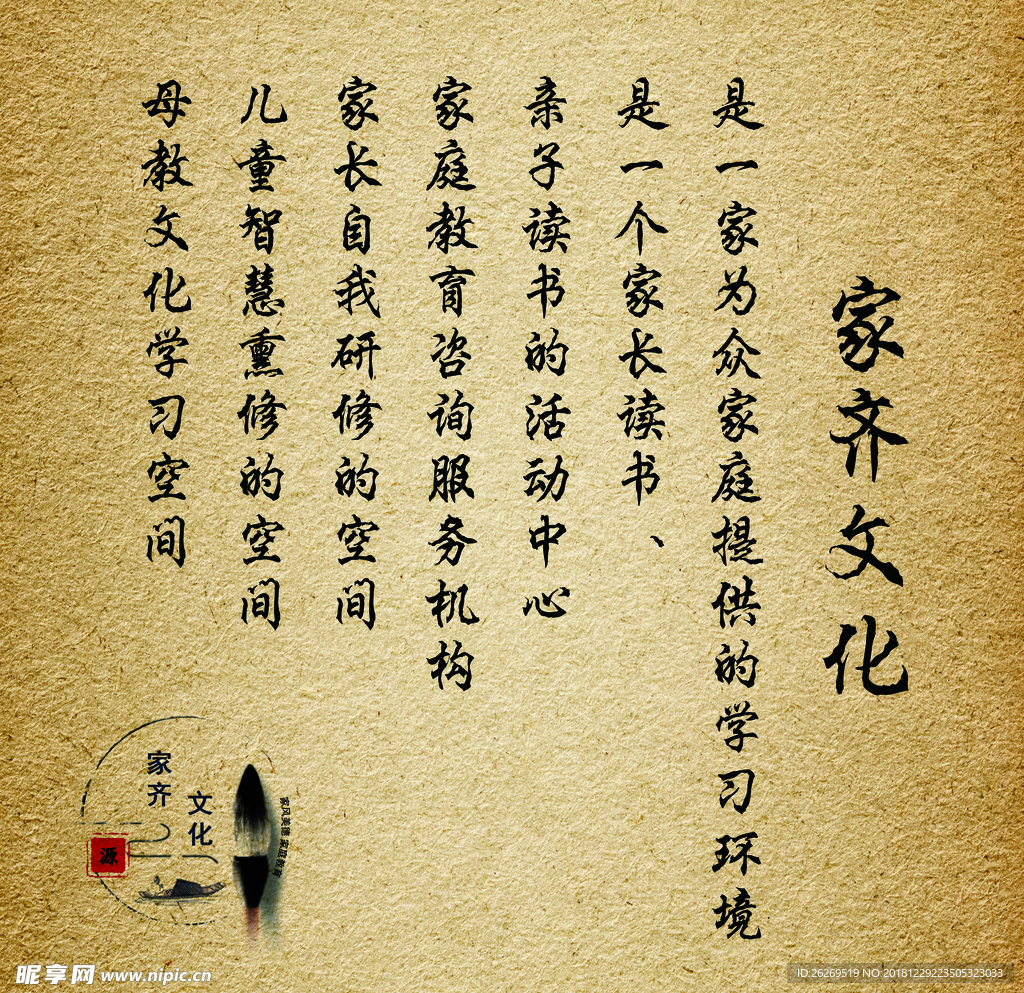 家齐文化
是一家为众家庭提供的学习环境
是一个家长读书、
亲子读书的活动中心
家庭教育咨询服务机构
家长自我研修的空间
儿童智慧熏修的空间
母教文化学习空间
家齐
文化
源
家风美德 家庭教育
昵享网 www.nipic.cn
ID:26269519 NO:20181229223505323033